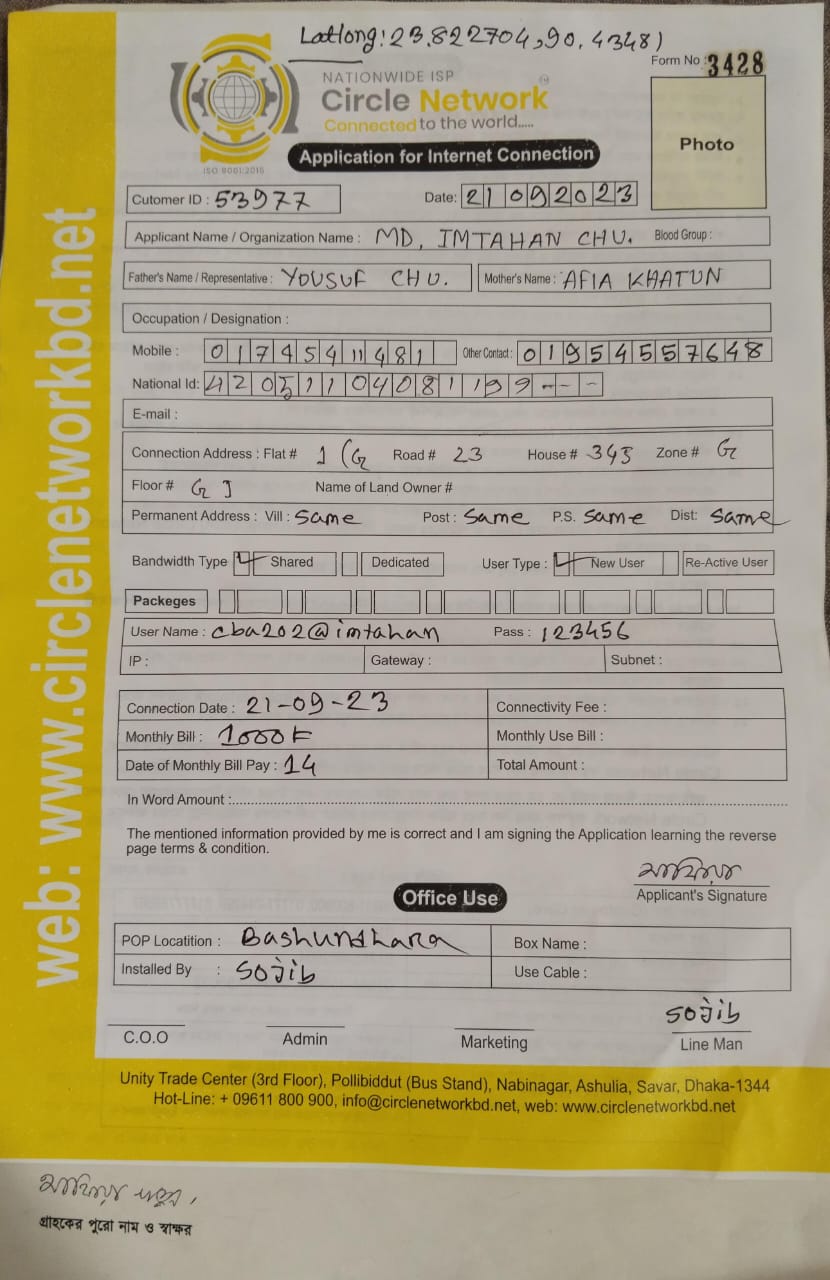 Latlong: 23.822704,90.43481
Form No : 3428
NATIONWIDE ISP
Circle Network
Connected to the world.....
ISO 9001:2015
Photo
Application for Internet Connection
Cutomer ID : 53977 Date: 21092023
Applicant Name / Organization Name : MD, IMTAHAN CHU. Blood Group :
Father's Name / Representative : YOUSUF CHU. Mother's Name : AFIA KHATUN
Occupation / Designation :
Mobile : Other Contact : 01954557648
National Id:
E-mail :
Connection Address : Flat # Road # 23 House # 345 Zone # G
Floor # Name of Land Owner #
Permanent Address : Vill : Same Post : Same P.S. Same Dist: Same
Bandwidth Type Shared Dedicated User Type : New User Re-Active User
Packeges
User Name : cba202@imtahan Pass : 123456
IP : Gateway : Subnet :
Connection Date : 21-09-23 Connectivity Fee :
Monthly Bill : 1000 Monthly Use Bill :
Date of Monthly Bill Pay : 14 Total Amount :
In Word Amount :
The mentioned information provided by me is correct and I am signing the Application learning the reverse
page terms & condition.
Applicant's Signature
Office Use
POP Locatition : Bashundhara Box Name :
Installed By : Sojib Use Cable :
Sojib
C.O.O Admin Marketing Line Man
Unity Trade Center (3rd Floor), Pollibiddut (Bus Stand), Nabinagar, Ashulia, Savar, Dhaka-1344
Hot-Line: + 09611 800 900, info@circlenetworkbd.net, web: www.circlenetworkbd.net
web: www.circlenetworkbd.net
গ্রাহকের পুরো নাম ও স্বাক্ষর